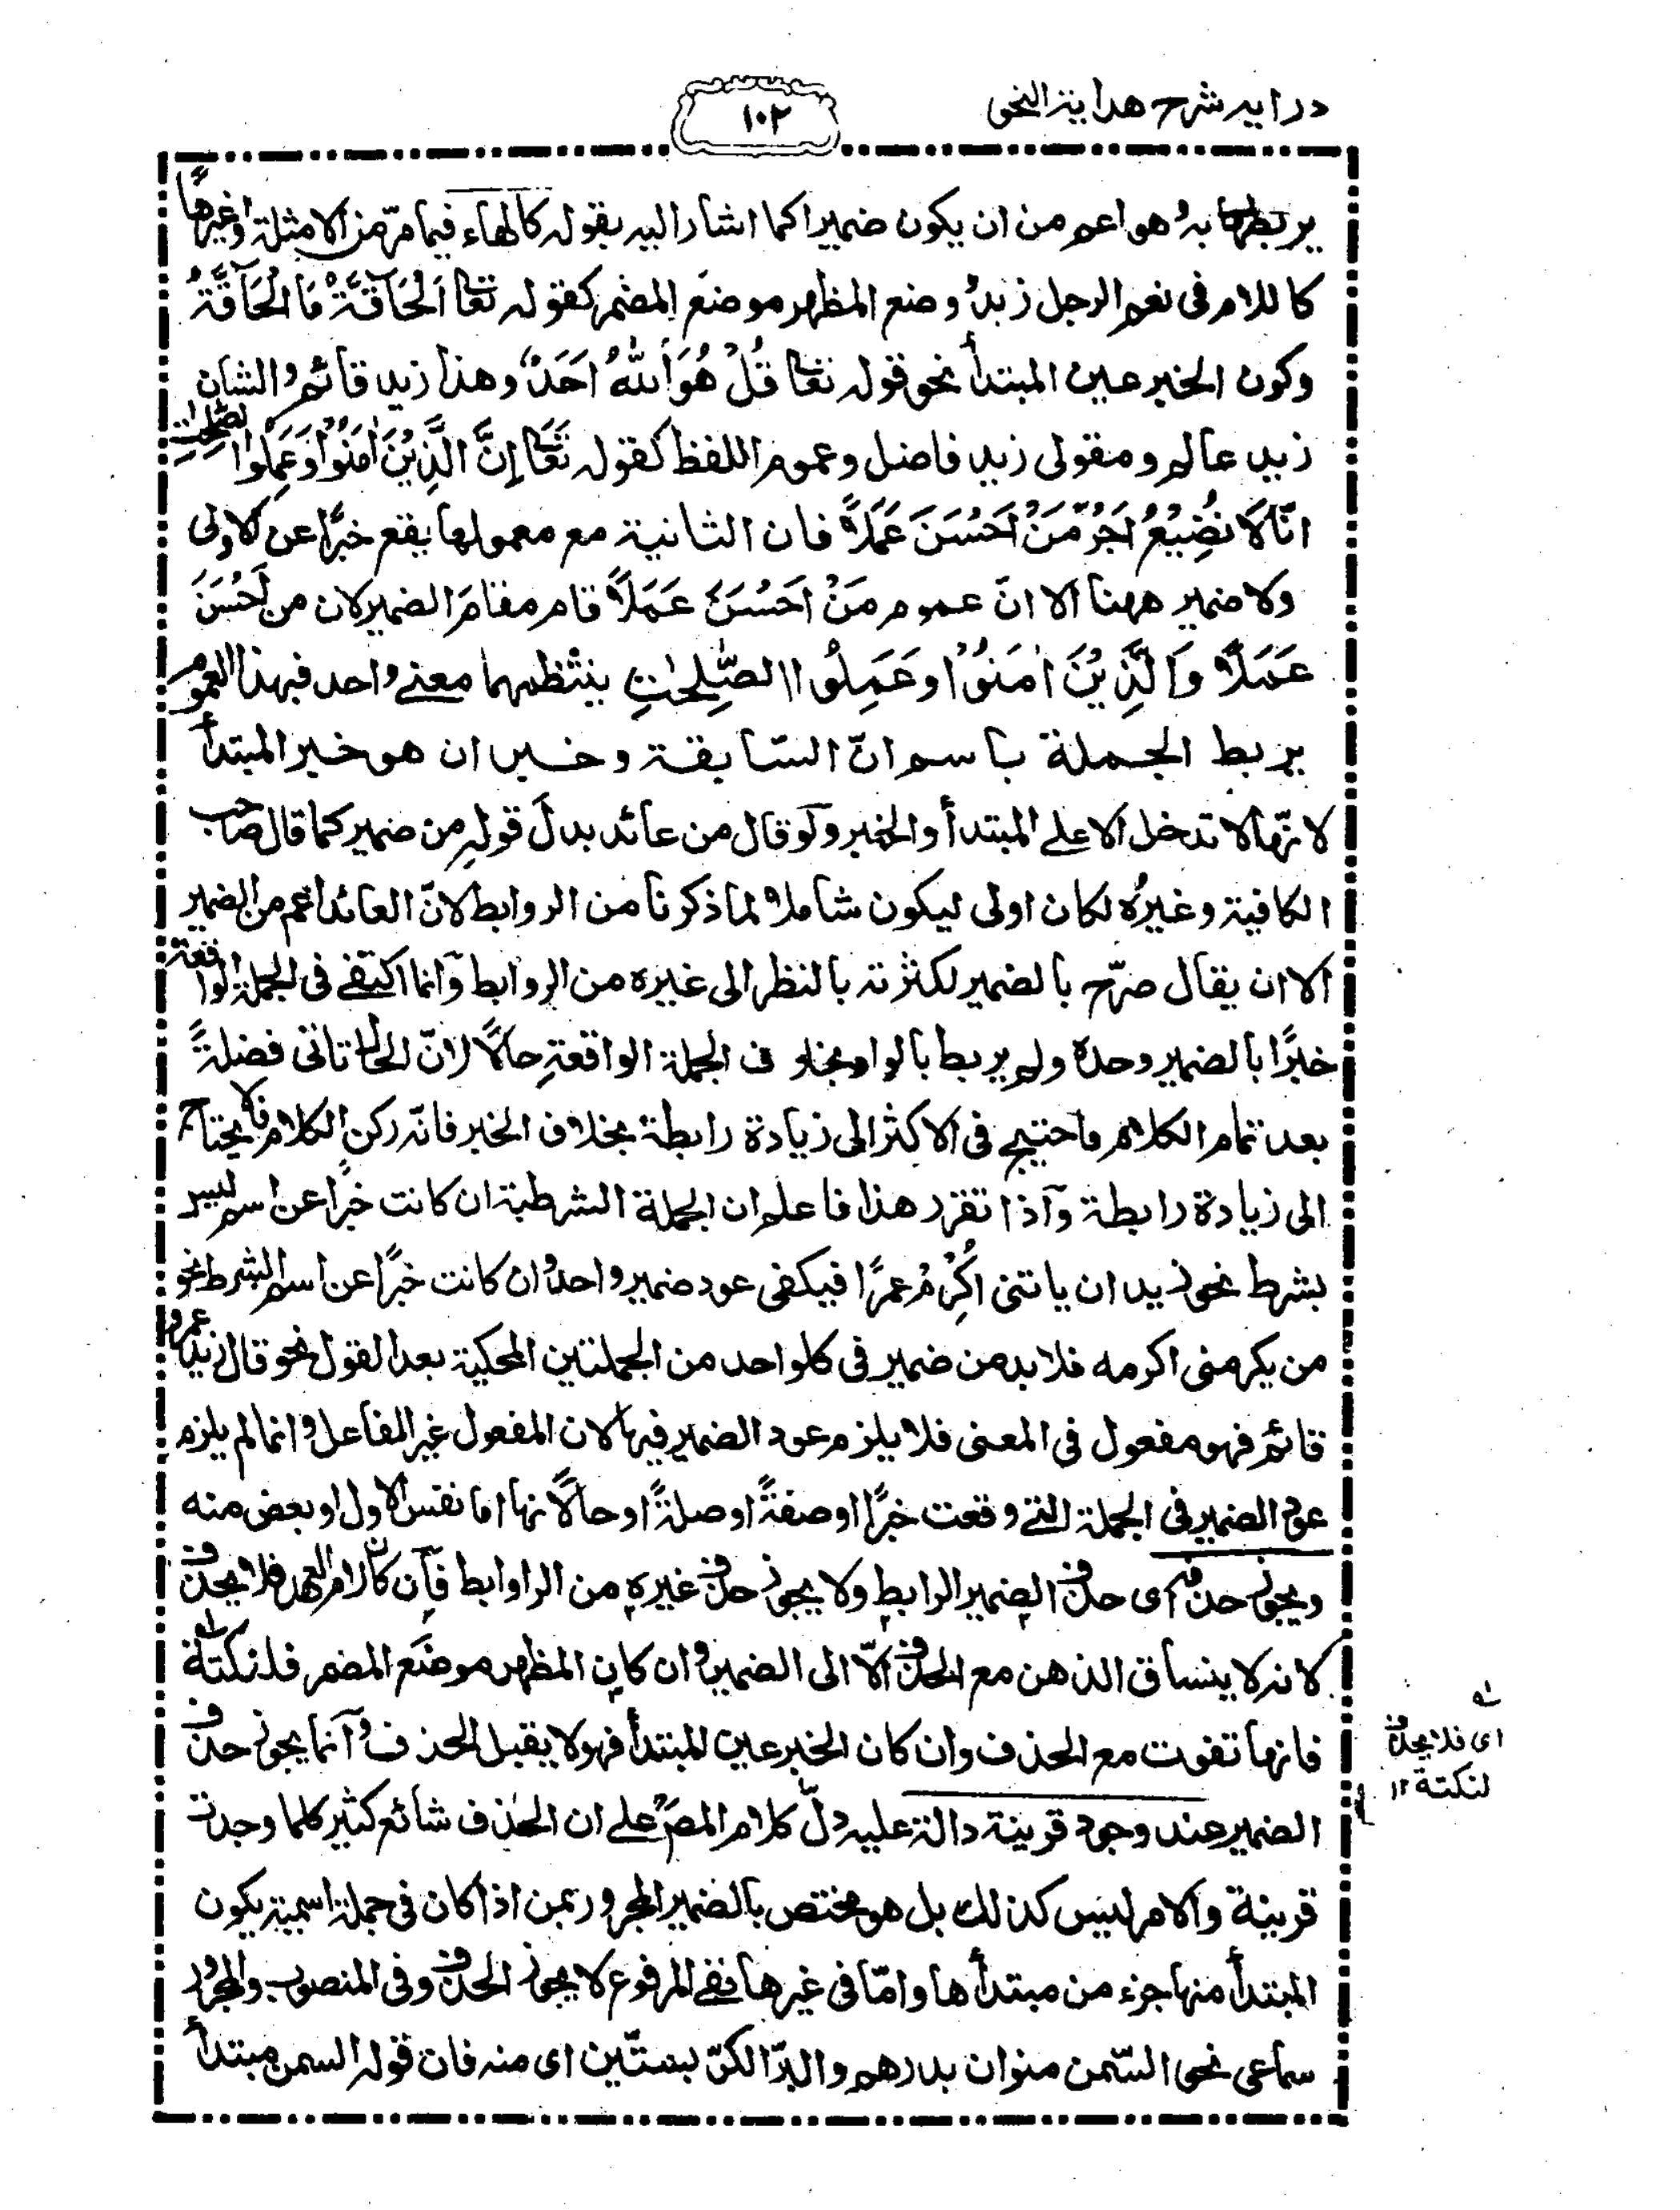 درايه شرح هداية النحو
١٠٢
يربطها به وهو اعم من ان يكون ضميرا كما اشار اليه بقوله كالهاء فيما مرّ من الامثلة او غيرها
كاللام فى نعم الرجل زيد و وضع المظهر موضع المضمر كقوله تعا اَلْحَاقَّةُ مَا الْحَاقَّةُ
وكون الخبر عين المبتدأ نحو قوله تعا قُلْ هُوَ اللّٰهُ اَحَدٌ وهذا زيد قائم والشان
زيد عالم ومقولى زيد فاضل وعموم اللفظ كقوله تعا اِنَّ الَّذِيْنَ اٰمَنُوْا وَعَمِلُوا الصّٰلِحٰتِ
انّا لَا نُضِيْعُ اَجْرَ مَنْ اَحْسَنَ عَمَلًا فان الثانية مع معمولها يقع خبرًا عن الاولى
ولا ضمير ههنا الا انّ عموم مَنْ اَحْسَنَ عَمَلًا قام مقامَ الضمير لان من اَحْسَنَ
عَمَلًا وَالَّذِيْنَ اٰمَنُوْا وَعَمِلُوا الصّٰلِحٰتِ ينتظمهما معنے واحد فبهذا العموم
يربط الجملة باسم انّ السّابقة وخبر ان هو خبر المبتدأ
لانّها لا تدخل الا علے المبتدأ والخبر ولو قال من عائد بدلَ قولهِ من ضمير كما قال صاحب
الكافية وغيرُه لكان اولى ليكون شاملا لما ذكرنا من الروابط لانّ العائد اعم من الضمير
الا ان يقال صرّح بالضمير لكثرته بالنظر الى غيره من الروابط وانما اكتفے فى الجملة الواقعة
خبرًا بالضمير وحده ولم يربط بالواو بخلاف الجملة الواقعةِ حالًا لانّ الحال تاتى فضلةً
بعد تمام الكلام فاحتيج فى الاكثر الى زيادة رابطة بخلاف الخبر فانّه ركن الكلام فلا يحتاج
الى زيادة رابطة وآذا تقرر هذا فاعلم ان الجملة الشرطية ان كانت خبرًا عن اسم ليس
بشرط نحو زيد ان ياتنى اُكْرِمْ عمرًا فيكفى عود ضمير واحد وان كانت خبرًا عن اسم الشرط نحو
من يكرمنى اكرمه فلا بد من ضمير فى كلواحد من الجملتين المحكية بعد القول نحو قال زيد عمرو
قائم فهو مفعول فى المعنى فلا يلزم عود الضمير فيها لان المفعول غير الفاعل وانما لم يلزم
عود الضمير فى الجملة التے وقعت خبرًا او صفةً او صلةً او حالًا لانها اما نفس الاول او بعض منه
ويجوز حذفه اى حذف الضمير الرابط ولا يجوز حذف غيرهِ من الراوابط فآن كان لام العهد فلا يحذف
لانه لا ينساق الذهن مع الحذف الّا الى الضمير وان كان المظهر موضع المضمر فلنكتة
فانها تفوت مع الحذف وان كان الخبر عين المبتدأ فهو لا يقبل الحذف وآنما يجوز حذف
الضمير عند وجود قرينة دالة عليه دلّ كلام المصؒ علے ان الحذف شائع كثير كلما وجدت
قرينة والامر ليس كذلك بل هو مختص بالضمير المجرور بمن اذا كان فى جملة اسمية يكون
المبتدأ منها جزء من مبتدأها وامّا فى غيرها ففے المرفوع لا يجوز الحذف وفى المنصوب والمجرور
سماعى نحو السّمن منوان بدرهم والبرّ الكرّ بستّين اى منه فان قوله السمن مبتدأ
اى فلا يحذف
لنكتة ١٢